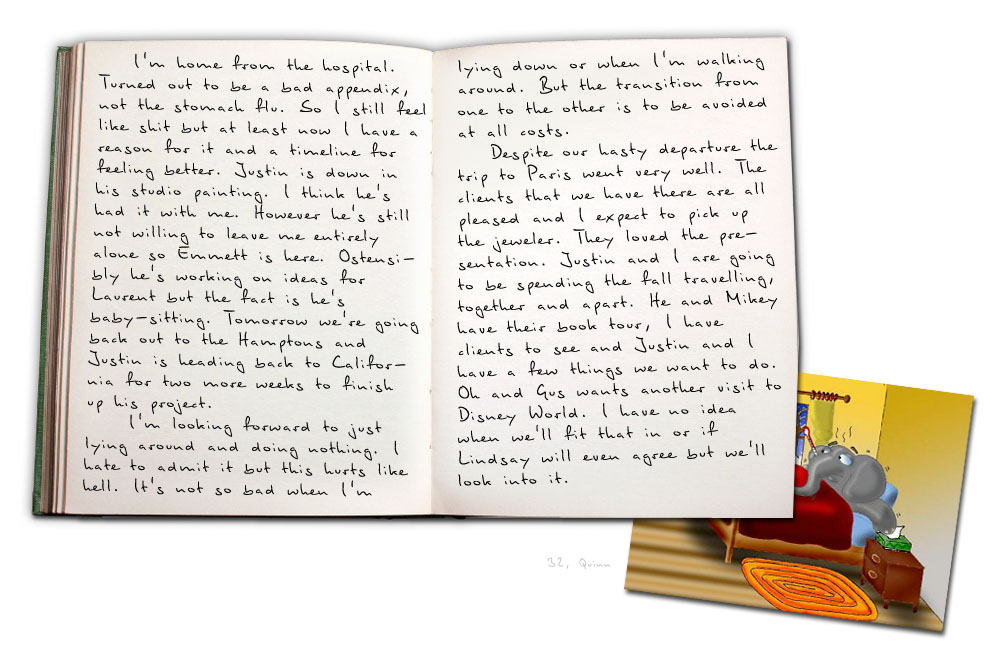 I'm home from the hospital.
Turned out to be a bad appendix,
not the stomach flu. So I still feel
like shit but at least now I have a
reason for it and a timeline for
feeling better. Justin is down in
his studio painting. I think he's
had it with me. However he's still
not willing to leave me entirely
alone so Emmett is here. Ostensi-
bly he's working on ideas for
Laurent but the fact is he's
baby-sitting. Tomorrow we're going
back out to the Hamptons and
Justin is heading back to Califor-
nia for two more weeks to finish
up his project.
I'm looking forward to just
lying around and doing nothing. I
hate to admit it but this hurts like
hell. It's not so bad when I'm
lying down or when I'm walking
around. But the transition from
one to the other is to be avoided
at all costs.
Despite our hasty departure the
trip to Paris went very well. The
clients that we have there are all
pleased and I expect to pick up
the jeweler. They loved the pre-
sentation. Justin and I are going
to be spending the fall travelling,
together and apart. He and Mikey
have their book tour, I have
clients to see and Justin and I
have a few things we want to do.
Oh and Gus wants another visit to
Disney World. I have no idea
when we'll fit that in or if
Lindsay will even agree but we'll
look into it.
32, Quinn